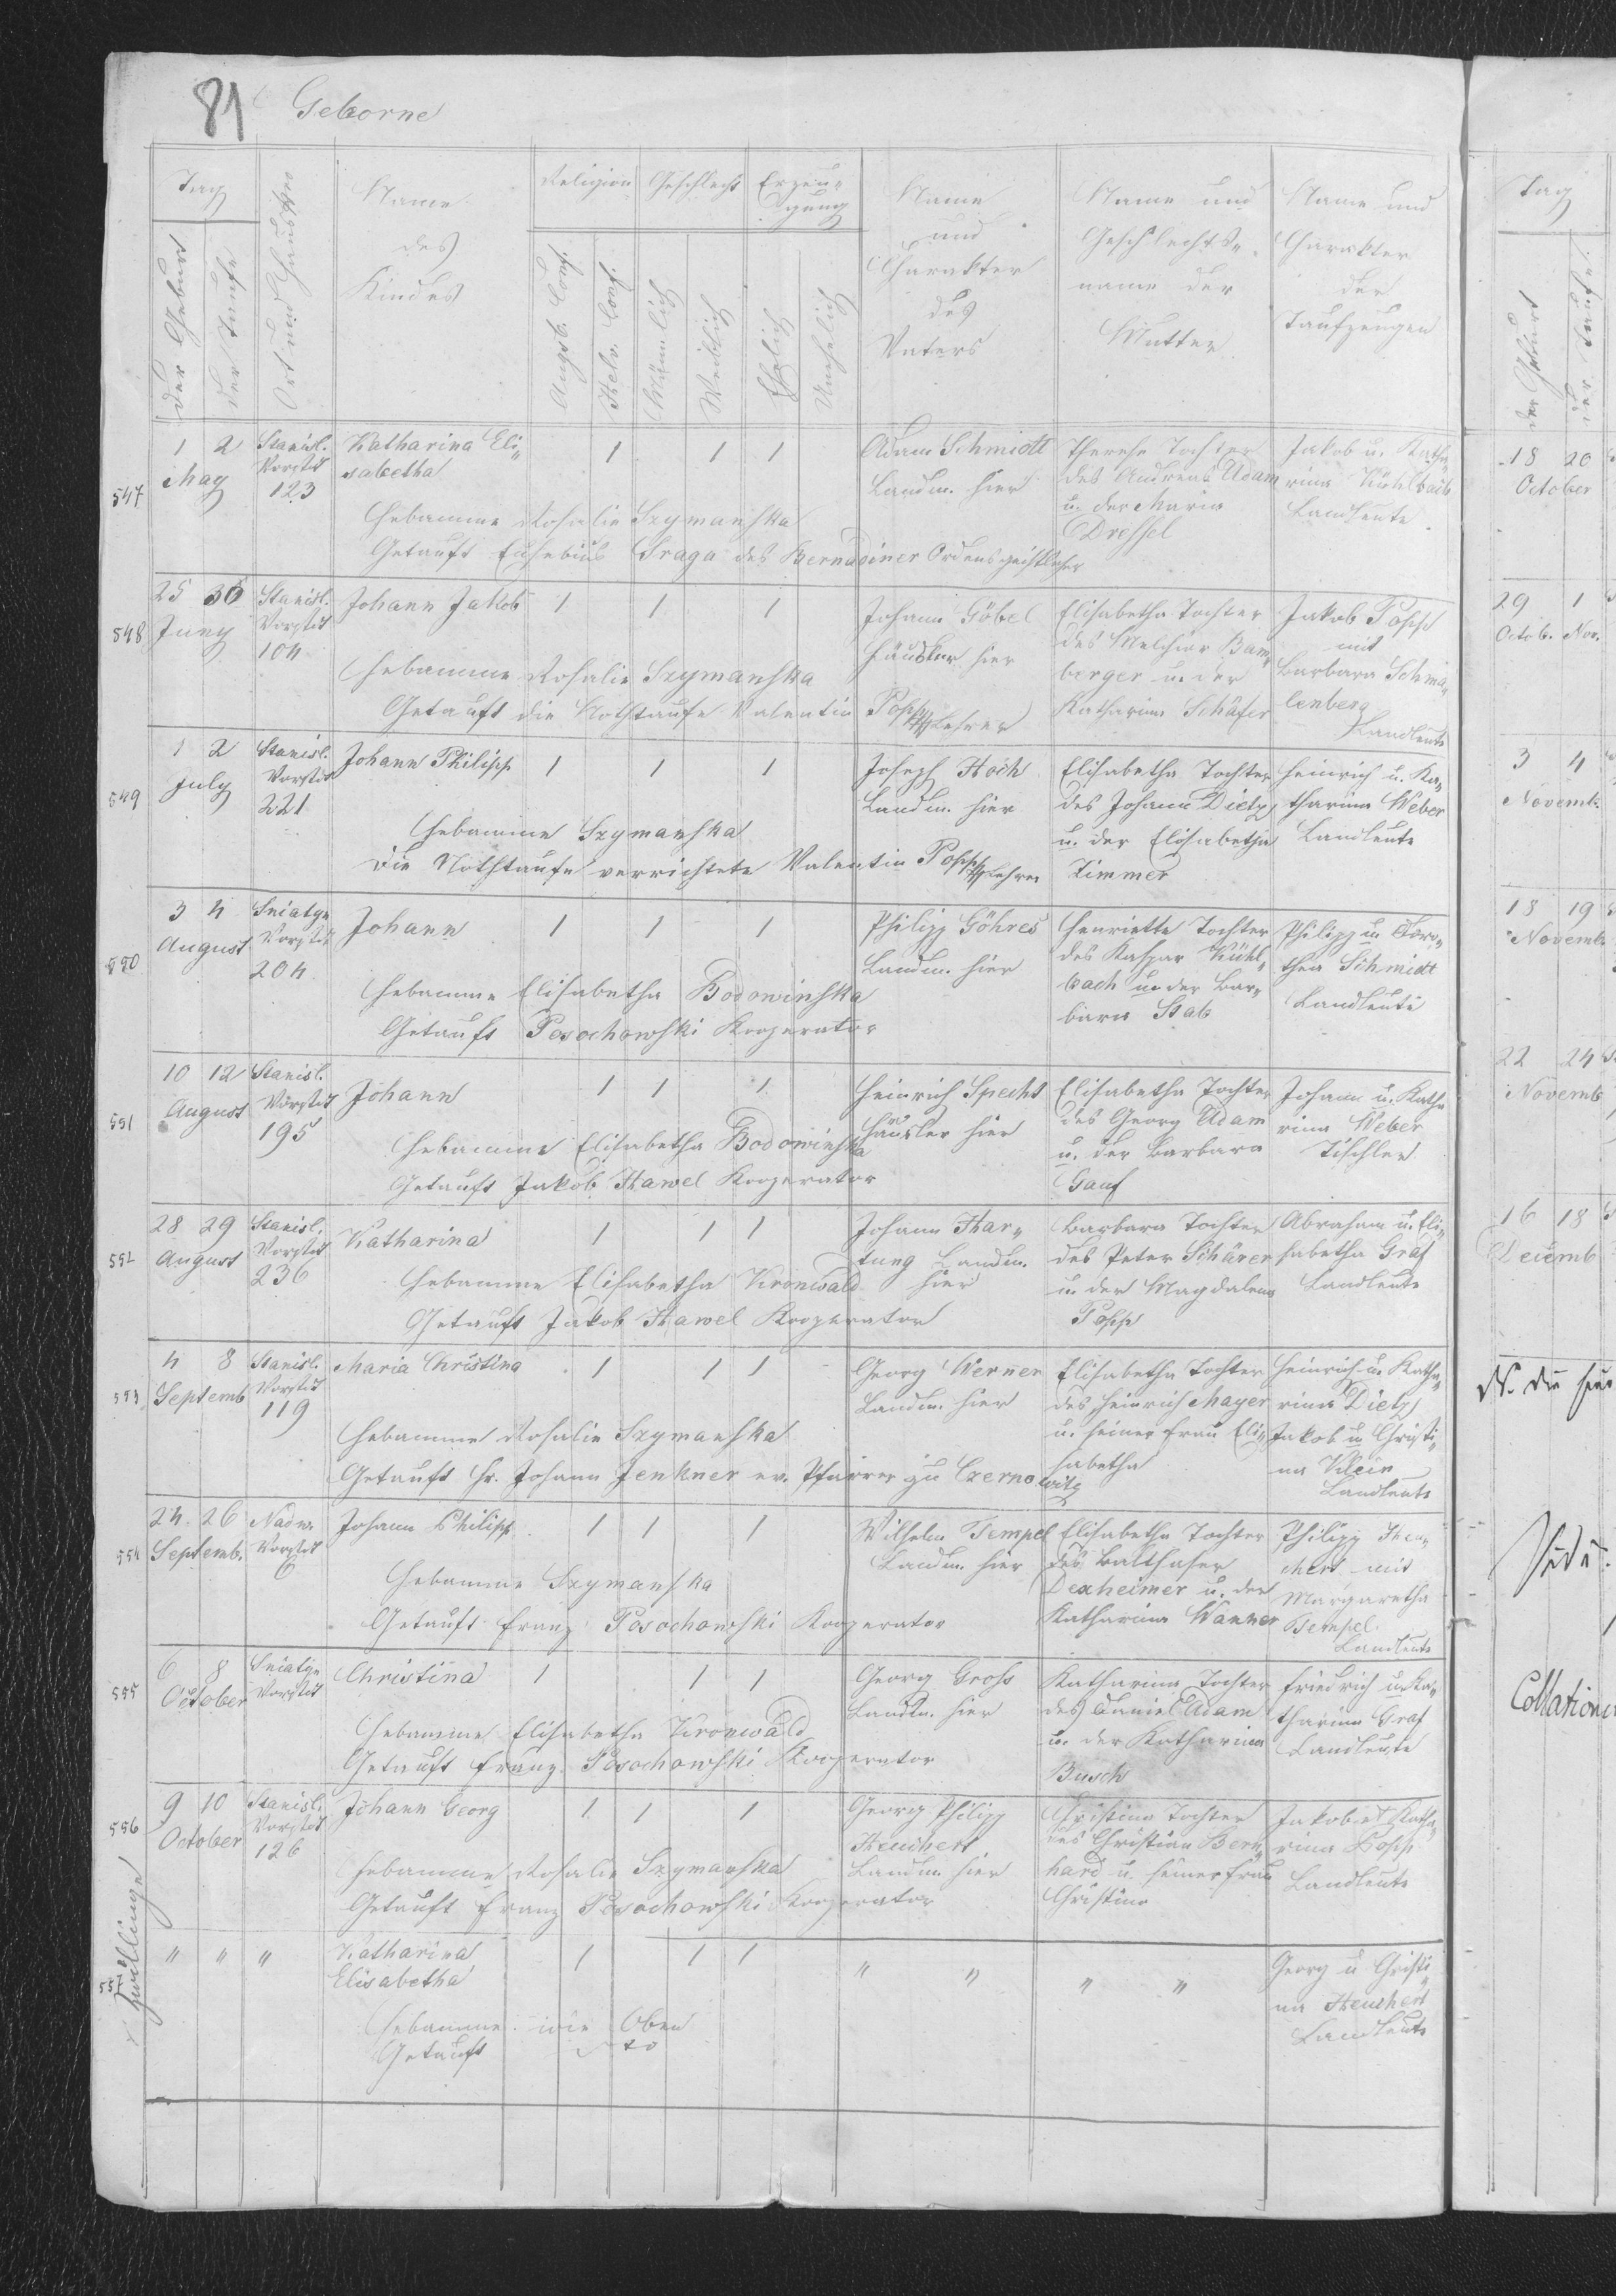 81 Geborne
Tag
der Geburt
der Taufe
Ort und Haus Nro
Name
des
Kindes
Religion
Augsb. Conf.
Helv. Conf.
Geschlecht
Männlich
Weiblich
Erzeu-
gung
Ehelich
Unehelich
Name
und
Charakter
des
Vaters
Name und
Geschlechts-
name der
Mutter
Name und
Charakter
der
Taufzeugen
547
1 2
May
Stanisl.
Vorstdt
123
Katharina Eli-
sabetha
1 1 1
Adam Schmidt
Landm. hier
Therese Tochter
des Andreas Adam
u. der Maria
Dressel
Jakob u. Katha-
rina Kühlbach
Landleute
Hebamme Rosalie Szymanska
Getauft Eusebius Sraga des Bernadiner Ordens geistlicher
548
25 30
Juny
Stanisl.
Vorstdt
104
Johann Jakob
1 1 1
Johann Göbel
Häusler hier
Elisabetha Tochter
des Melchior Bam-
berger u. der
Katharina Schäfer
Jakob Popp
mit
Barbara Schma-
lenberg
Landleute
Hebamme Rosalie Szymanska
Getauft die Nothtaufe Valentin Popp Lehrer
549
1 2
July
Stanisl.
Vorstdt
221
Johann Philipp
1 1 1
Joseph Hoch
Landm. hier
Elisabetha Tochter
des Johann Dietz
u. der Elisabetha
Zimmer
Heinrich u. Ka-
tharina Weber
Landleute
Hebamme Szymanska
Die Nothtaufe verrichtete Valentin Popp Lehrer
550
3 4
August
Sniatyn
Vorstdt
204
Johann
1 1 1
Philipp Göhres
Landm. hier
Henriette Tochter
des Kaspar Kühl-
bach u. der Bar-
bara Stab
Philipp u. Doro-
thea Schmidt
Landleute
Hebamme Elisabetha Bodowinska
Getauft Posochowski Kooperator
551
10 12
August
Stanisl.
Vorstdt
195
Johann
1 1 1
Heinrich Specht
Häusler hier
Elisabetha Tochter
des Georg Adam
u. der Barbara
Gauf
Johann u. Katha
rina Weber
Tischler
Hebamme Elisabetha Bodowinska
Getauft Jakob Hawel Kooperator
552
28 29
August
Stanisl.
Vorstdt
236
Katharina
1 1 1
Johann Har-
tung Landm.
hier
Barbara Tochter
des Peter Schärer
u. der Magdalena
Popp
Abraham u. Eli-
sabetha Graf
Landleute
Hebamme Elisabetha Kronwald
Getauft Jakob Hawel Kooperator
553
4 8
Septemb
Stanisl.
Vorstdt
119
Maria Christina
1 1 1
Georg Werner
Landm. hier
Elisabetha Tochter
des Heinrich Mayer
u. seiner Frau Eli-
sabetha
Heinrich u. Katha-
rina Dietz
Jakob u. Christi-
na Klein
Landleute
Hebamme Rosalie Szymanska
Getauft Hr. Johann Jenkner ev. Pfarrer zu Czernowitz
554
24 26
Septemb.
Nadw.
Vorstdt
6
Johann Philipp
1 1 1
Wilhelm Tempel
Landm. hier
Elisabetha Tochter
des Balthaser
Dexheimer u. der
Katharina Wanner
Philipp Heu-
chert mit
Margaretha
Tempel
Landleute
Hebamme Szymanska
Getauft Franz Posochowski Kooperator
555
6 8
October
Sniatyn
Vorstdt
Christina
1 1 1
Georg Gross
Landm. hier
Katharina Tochter
des Daniel Adam
u. der Katharina
Busch
Friedrich u. Ka-
tharina Graf
Landleute
Hebamme Elisabetha Kronwald
Getauft Franz Posochowski Kooperator
556
9 10
October
Stanisl.
Vorstdt
126
Johann Georg
1 1 1
Georg Philipp
Heuchert
Landm. hier
Christina Tochter
des Christian Bern-
hard u. seiner Frau
Christine
Jakob u. Katha-
rina Popp
Landleute
Hebamme Rosalie Szymanska
Getauft Franz Posochowski Kooperator
557
Zwillinge
" " "
Katharina
Elisabetha
1 1 1
" " " "
Georg u Christi
na Heuchert
Landleute
Hebamme wie Oben
Getauft dto
Tag
der Geburt
der Taufe
18 20
October
29 1
Octob. Nov.
3 4
Novemb.
18 19
Novemb.
22 24
Novemb
16 18
Decemb
Collation